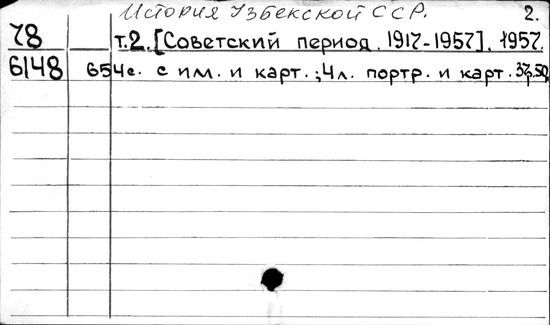 История Узбекской ССР. 2.
78 т.2. [Советский период. 1917-1957]. 1957.
6148 654с. с ил. и карт.; 4л. портр. и карт. 37р.50